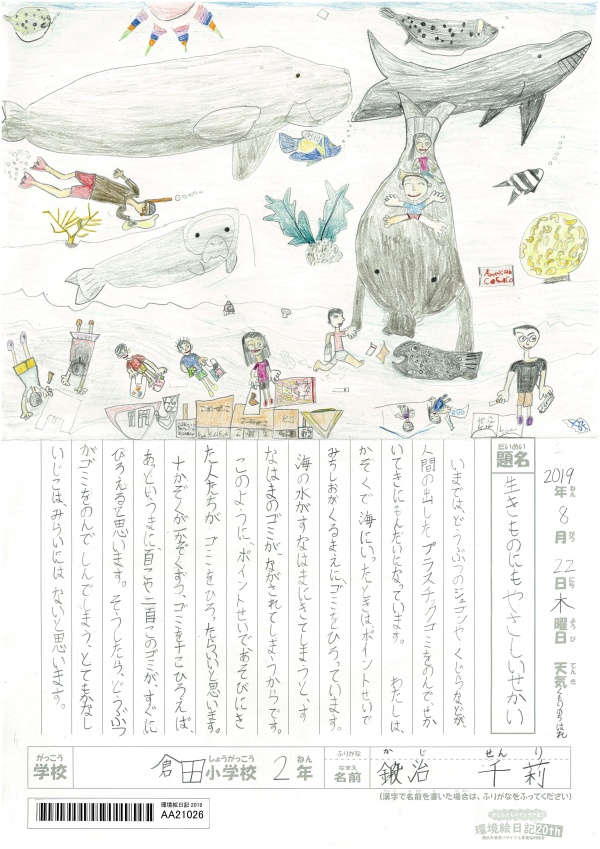 American
CoCaCo
2019年8月22日木曜日 天気くもりのちはれ
ねん
がつ
にち
ようび
てんき
だいめい
題名
生きものにもやさしいせかい
いまでは、どうぶつのジュゴンや、くじらなどが、
人間の出したプラスチックゴミをのんで、せか
いてきにもんだいになっています。 わたしは、
かぞくで海にいったときは、ポイントせいで
みちしおがくるまえに、ゴミをひろっています。
海の水がすなはまにきてしまうと、す
なはまのゴミが、ながされてしまうからです。
このように、ポイントせいであそびにき
た人たちが ゴミをひろったらいいと思います。
十かぞくが一かぞくずつ、ゴミを十こひろえば、
あっというまに、百こや二百このゴミが、すぐに
ひろえると思います。そうしたら、どうぶつ
がゴミをのんでしんでしまう、とてもかなし
いじこは、みらいには ないと思います。
がっこう
学校
倉田小学校 2年
しょうがっこう
ねん
ふりがな
かじ せんり
なまえ
名前
鍛治 千莉
(漢字で名前を書いた場合は、ふりがなをふってください)
環境絵日記 2019
AA21026
環境絵日記20th